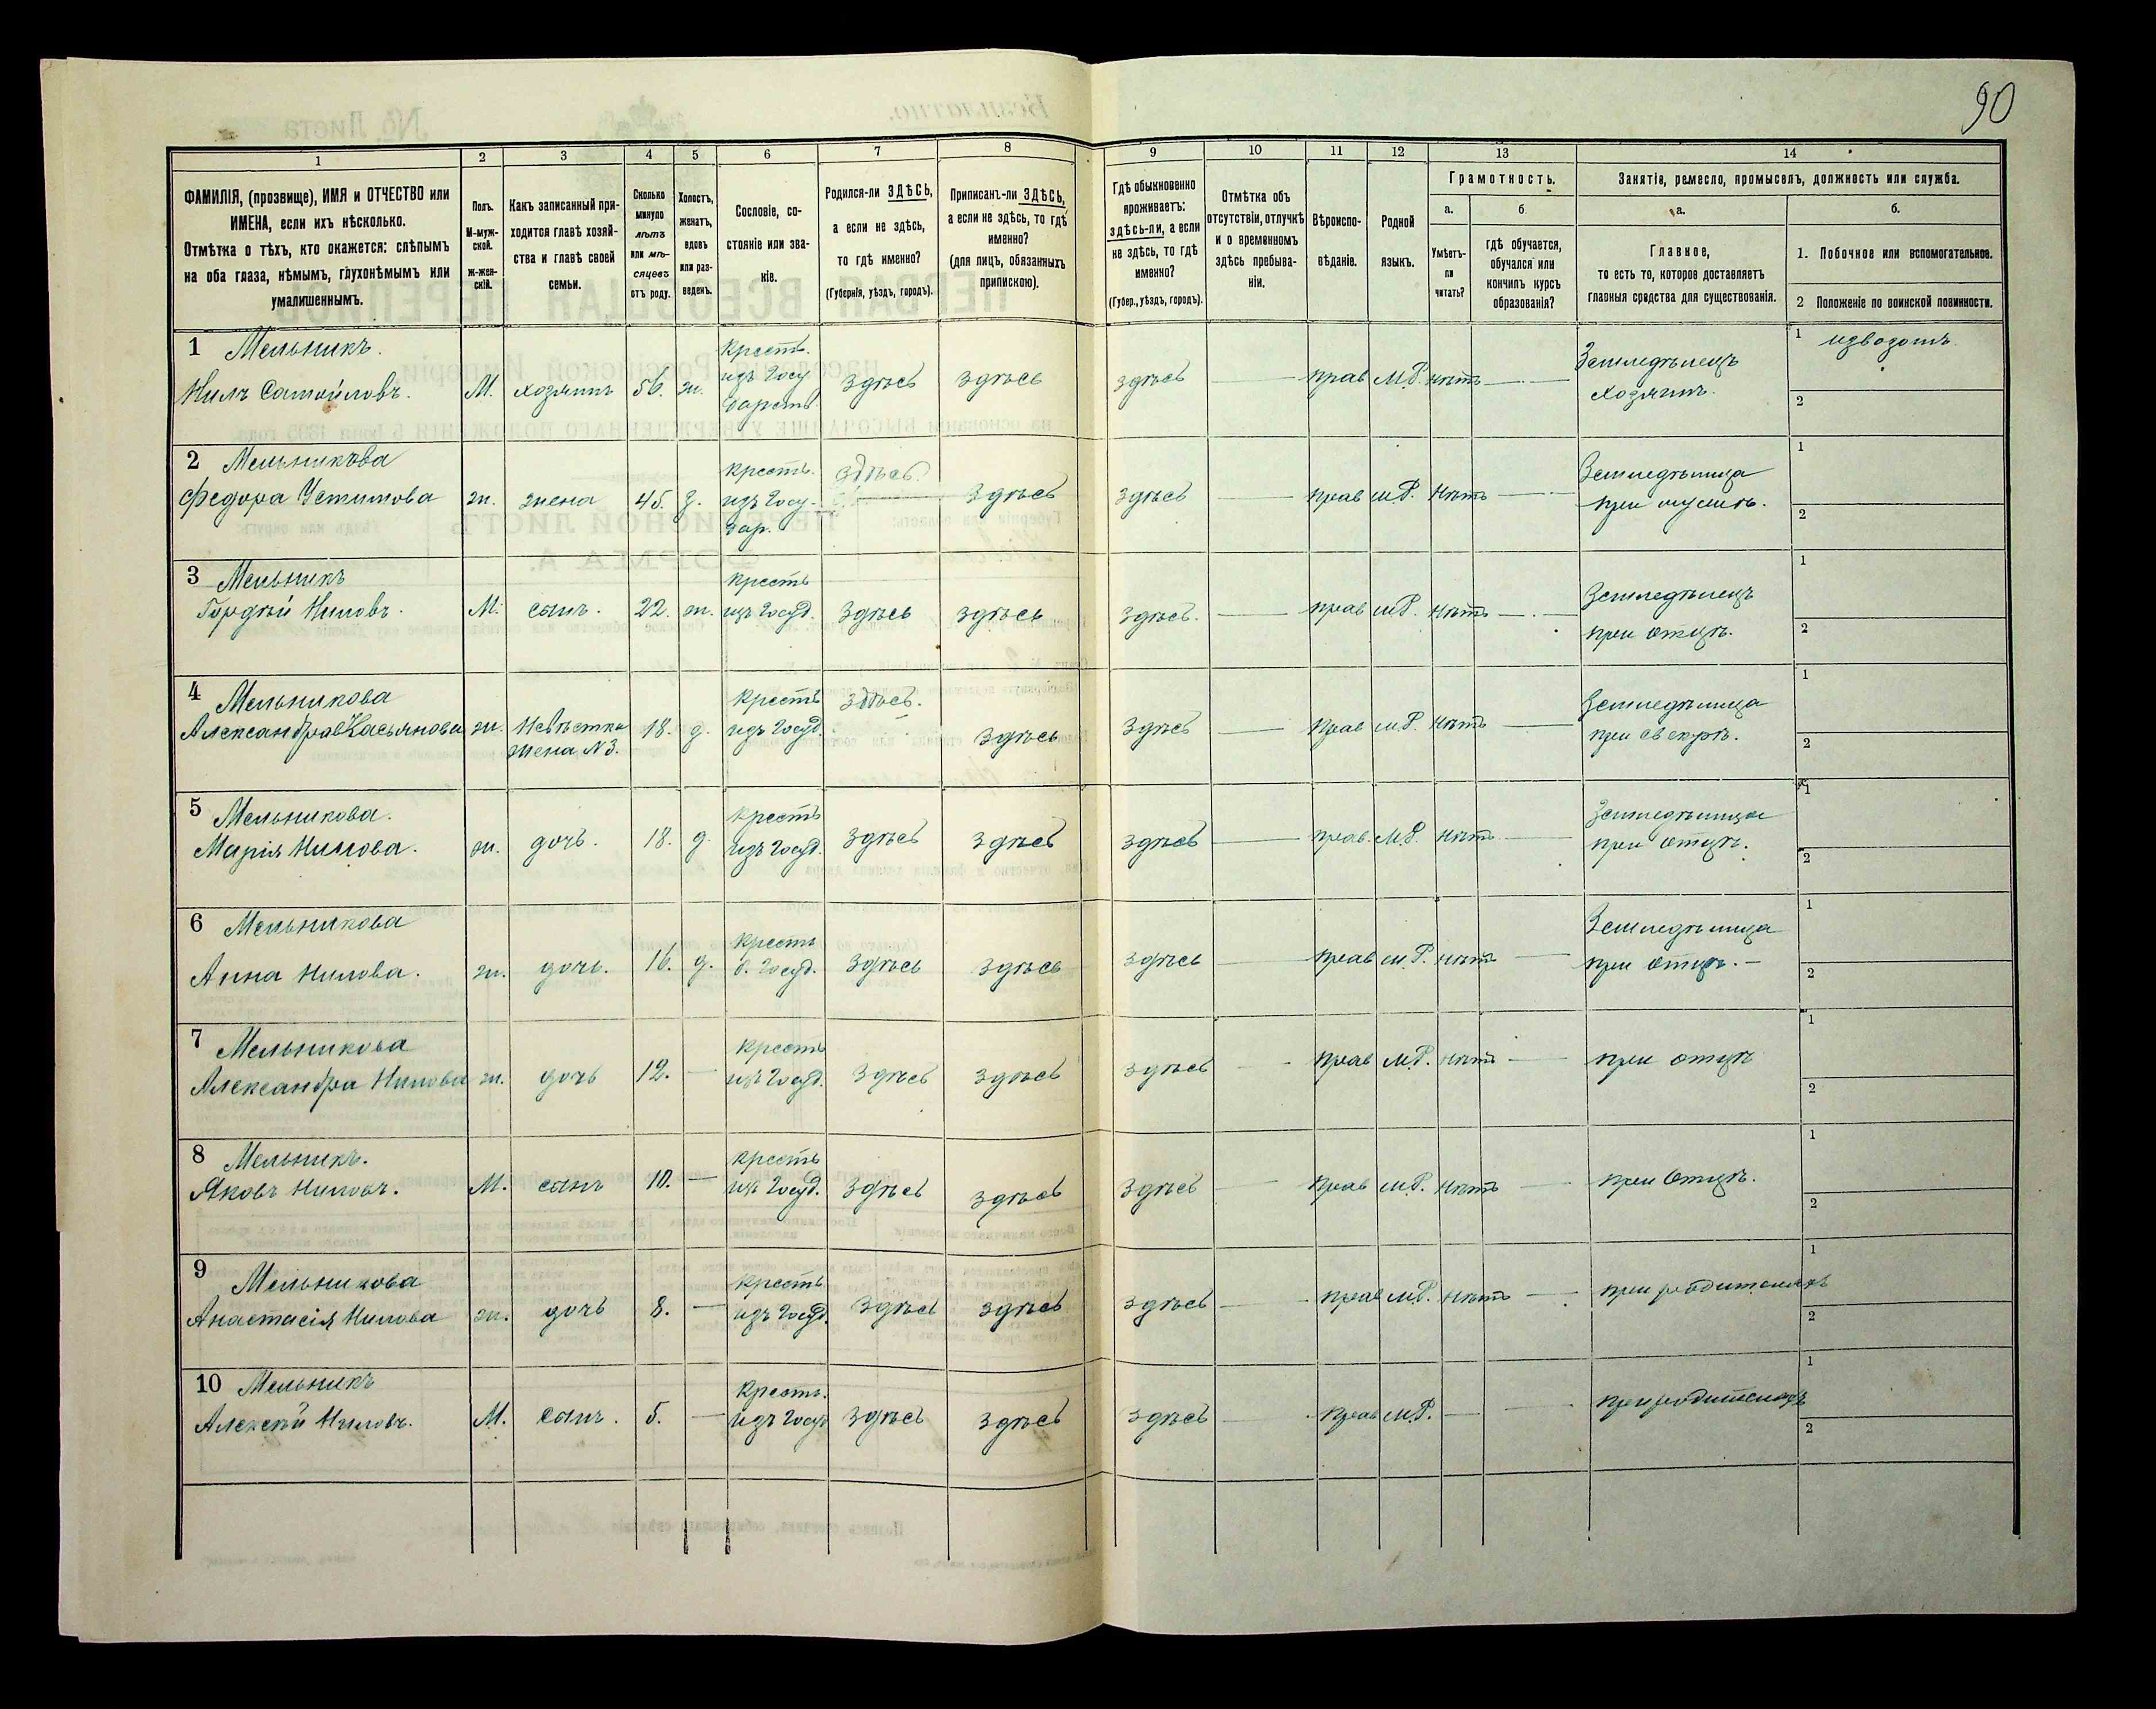 90
1
2
3
4
5
6
7
8
9
10
11
12
13
14
ФАМИЛІЯ, (прозвище), ИМЯ и ОТЧЕСТВО или
ИМЕНА, если ихъ нѣсколько.
Отмѣтка о тѣхъ, кто окажется: слѣпымъ
на оба глаза, нѣмымъ, глухонѣмымъ или
умалишеннымъ.
Полъ.
М-муж-
ской.
ж-жен-
скій.
Какъ записанный при-
ходится главѣ хозяй-
ства и главѣ своей
семьи.
Сколько
минуло
лѣтъ
или мѣ-
сяцевъ
отъ роду.
Холостъ,
женатъ,
вдовъ
или раз-
веденъ.
Сословіе, со-
стояніе или зва-
ніе.
Родился-ли ЗДѢСЬ,
а если не здѣсь,
то гдѣ именно?
(Губернія, уѣздъ, городъ).
Приписанъ-ли ЗДѢСЬ,
а если не здѣсь, то гдѣ
именно?
(для лицъ, обязанныхъ
припискою).
Гдѣ обыкновенно
проживаетъ:
здѣсь-ли, а если
не здѣсь, то гдѣ
именно?
(Губер., уѣздъ, городъ).
Отмѣтка объ
отсутствіи, отлучкѣ
и о временномъ
здѣсь пребыва-
ніи.
Вѣроиспо-
вѣданіе.
Родной
языкъ.
Грамотность.
а.
Умѣетъ-
ли
читать?
б.
гдѣ обучается,
обучался или
кончилъ курсъ
образованія?
Занятіе, ремесло, промыселъ, должность или служба.
а.
Главное,
то есть то, которое доставляетъ
главныя средства для существованія.
б.
1. Побочное или вспомогательное.
2 Положеніе по воинской повинности.
1 Мельникъ.
Нилъ Самойловъ. М. хозяинъ 56. ж. Крест. изъ Госу дарств. здѣсь здѣсь здѣсь — прав М.Р. нѣтъ — Земледѣлецъ хозяинъ. 1 извозомъ 2
2 Мельникова
Федора Устимова ж. жена 45. з. Крест. изъ Госу- дар. здѣсь здѣсь здѣсь — прав М.Р. нѣтъ — Земледѣлица при мужѣ. 1 2
3 Мельникъ
Гордѣй Ниловъ. М. сынъ. 22. ж. крест изъ Госуд. здѣсь здѣсь здѣсь. — прав М.Р. нѣтъ — Земледѣлецъ при отцѣ. 1 2
4 Мельникова
Александра Касьянова ж. невѣстка жена N3. 18. з. крест изъ Госуд. здѣсь. здѣсь здѣсь — прав М.Р. нѣтъ — Земледѣлица при свекрѣ. 1 2
5 Мельникова.
Марія Нилова. ж. дочь. 18. д. крест изъ Госуд. здѣсь здѣсь здѣсь — прав. М.Р. нѣтъ — Земледѣлица при отцѣ. 1 2
6 Мельникова
Анна Нилова. ж. дочь. 16. д. крест б. Госуд. здѣсь здѣсь здѣсь — прав М.Р. нѣтъ — Земледѣлица при отцѣ. — 1 2
7 Мельникова
Александра Нилова ж. дочь 12. — крест изъ Госуд. здѣсь здѣсь здѣсь — прав М.Р. нѣтъ — при отцѣ 1 2
8 Мельникъ.
Яковъ Ниловъ. М. сынъ 10. — крест изъ Госуд. здѣсь здѣсь здѣсь — прав М.Р. нѣтъ — при отцѣ. 1 2
9 Мельникова
Анастасія Нилова ж. дочь 8. — крест изъ Госуд. здѣсь здѣсь здѣсь — прав М.Р. нѣтъ — при родителяхъ 1 2
10 Мельникъ
Алексѣй Ниловъ. М. сынъ. 5. — Крест. изъ Госуд здѣсь здѣсь здѣсь — прав М.Р. — — при родителяхъ 1 2